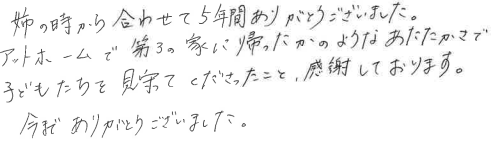 姉の時から合わせて5年間ありがとうございました。
アットホームで第3の家に帰ったかのようなあたたかさで
子どもたちを見守ってくださったこと、感謝しております。
今までありがとうございました。